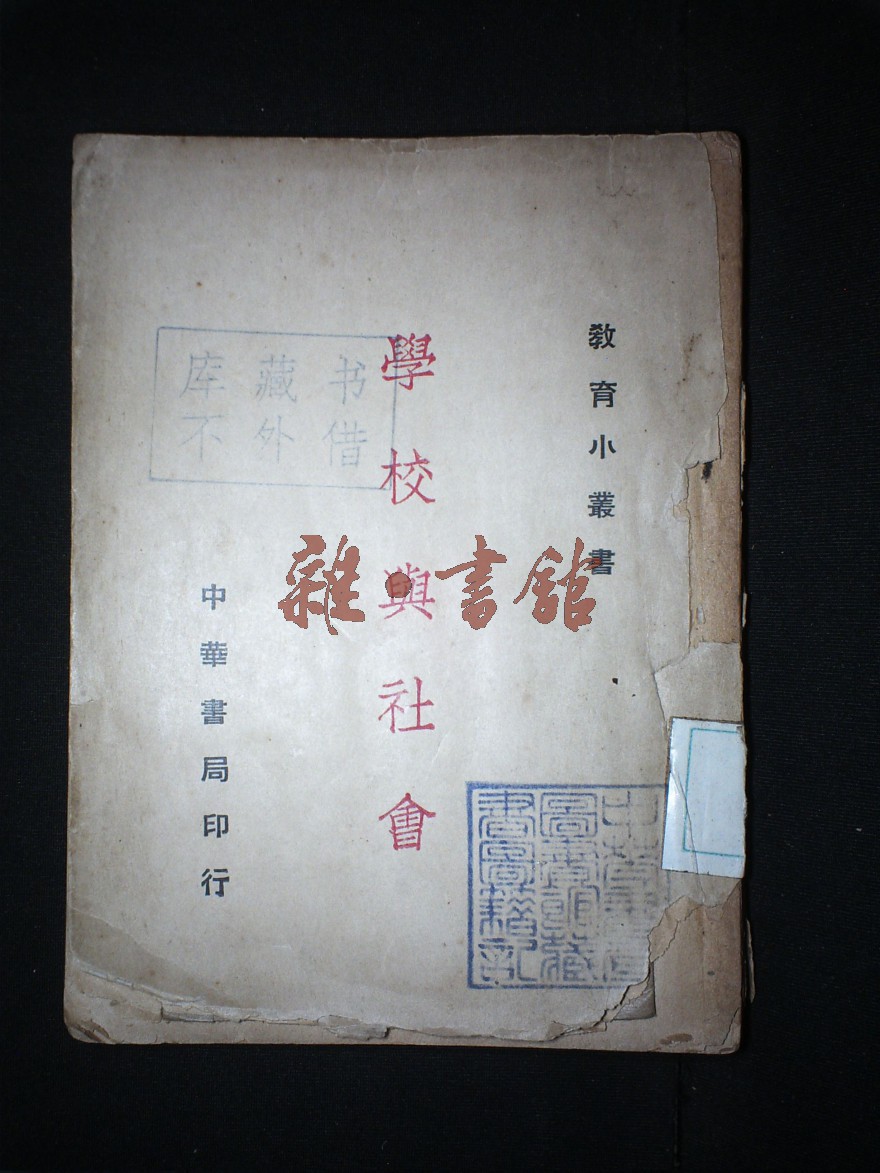 教育小叢書
學校與社會
中華書局印行
库藏书
不外借
雜·書館